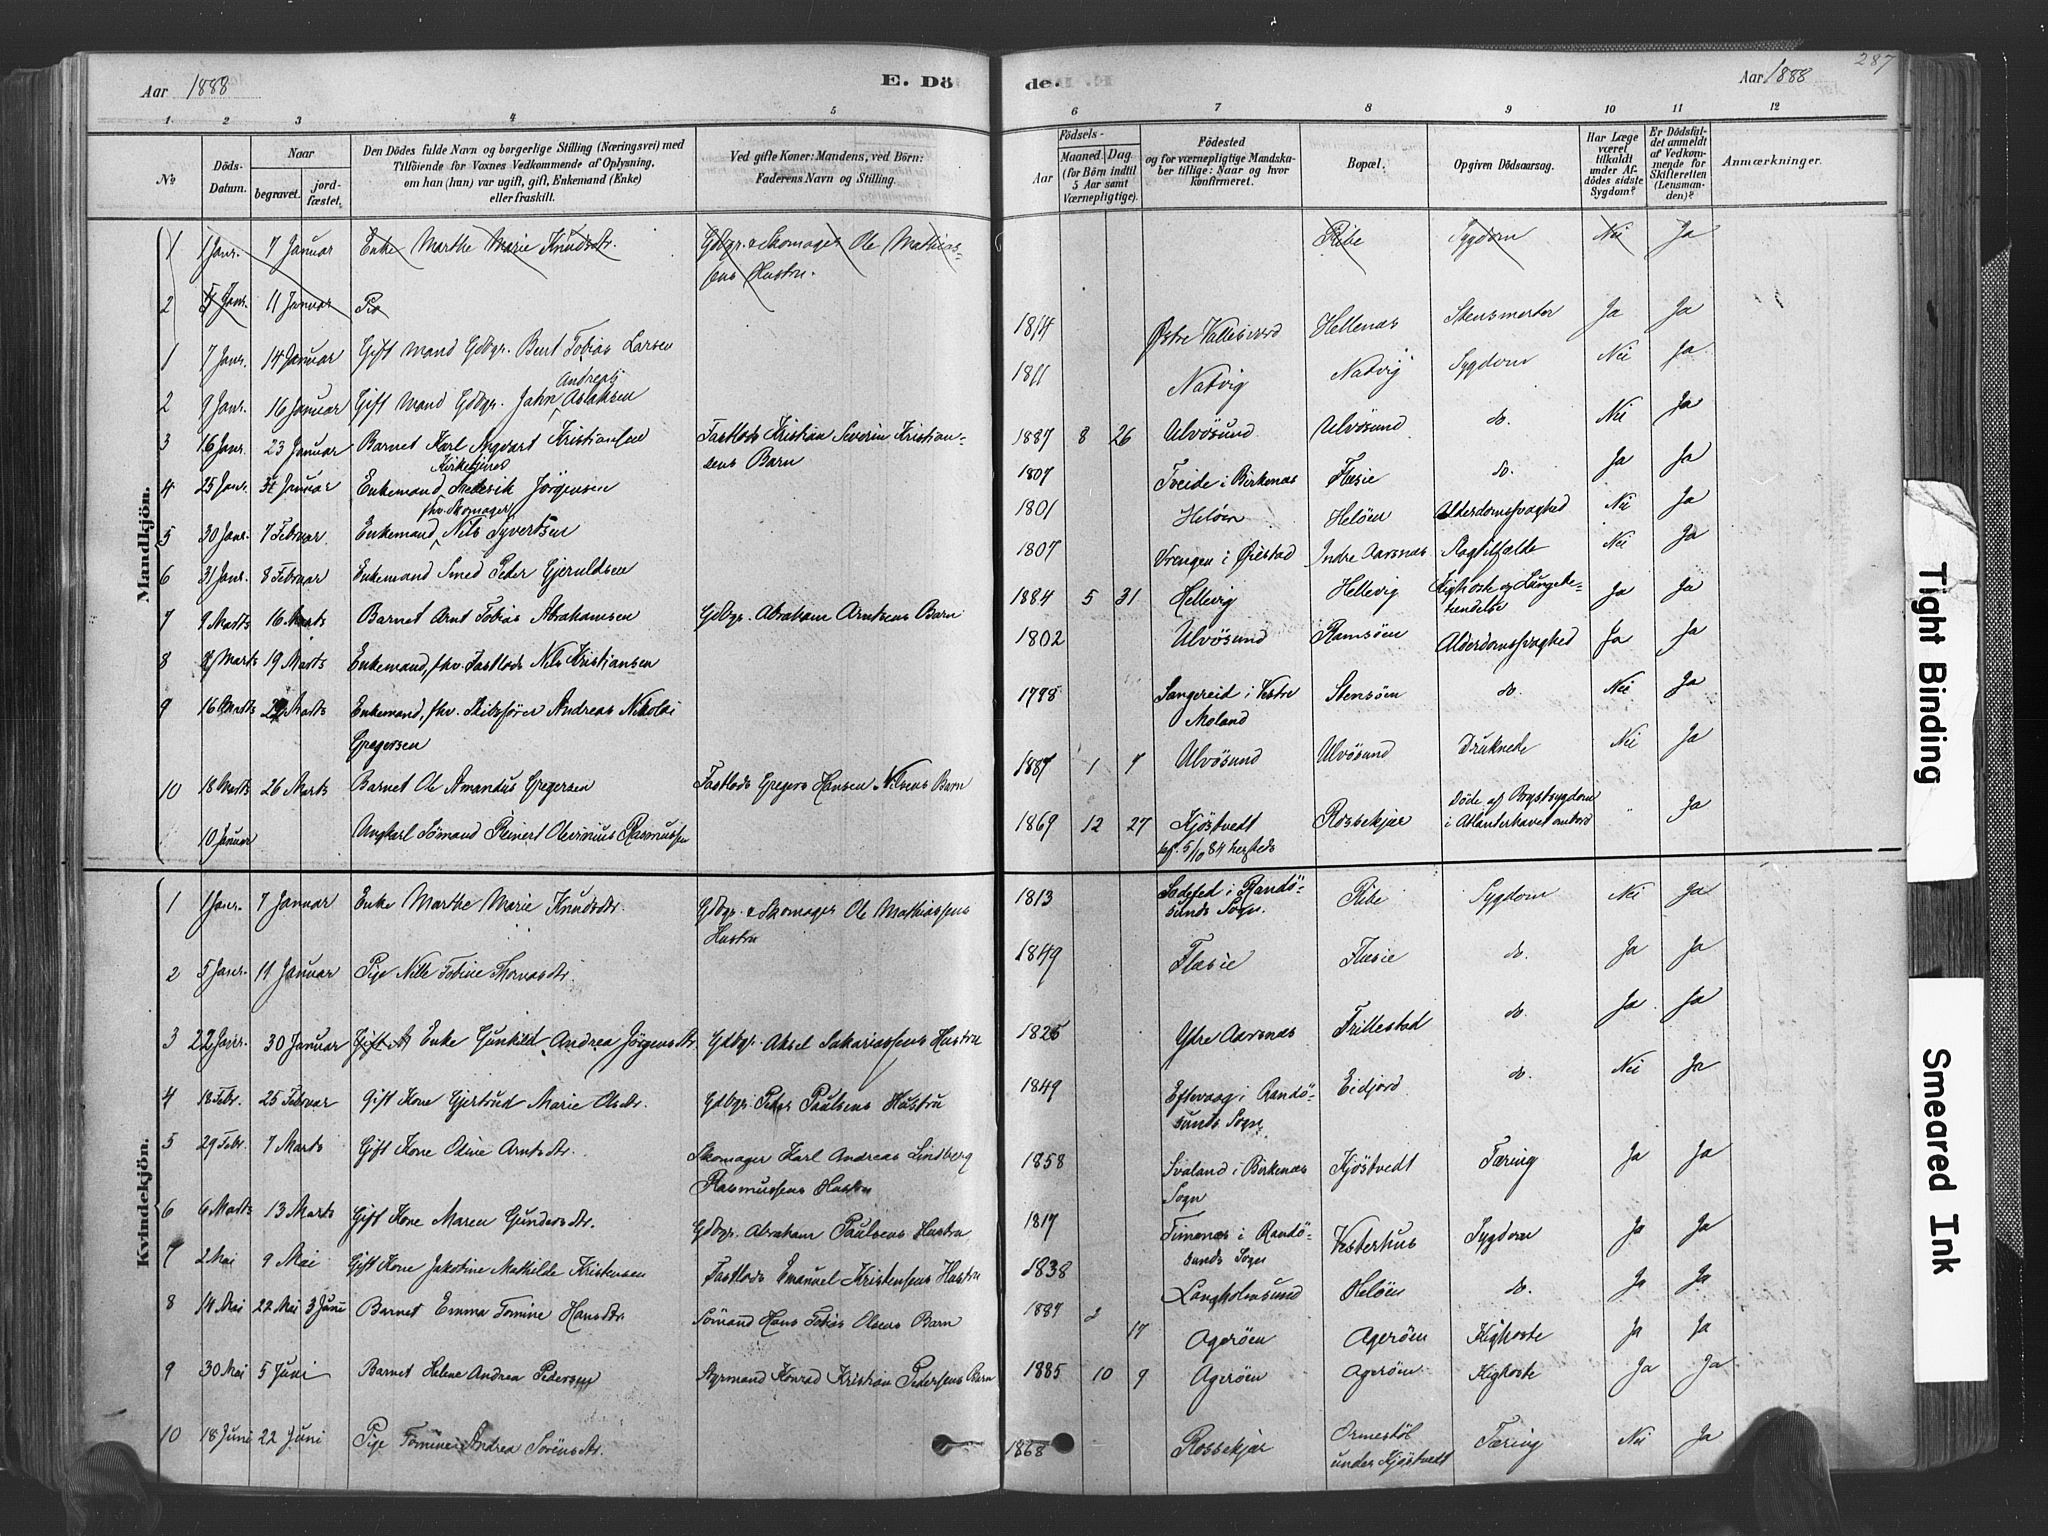 287
Aar 1888
E. Dö
de.
Aar 1888
1 2 3 4 5 6 7 8 9 10 11 12
№
Döds-
Datum.
Naar
begravet.
jord-
fæstet.
Den Dödes fulde Navn og borgerlige Stilling (Næringsvei) med
Tilföiende for Voxnes Vedkommende af Oplysning,
om han (hun) var ugift, gift, Enkemand (Enke)
eller fraskilt.
Ved gifte Koner: Mandens, ved Börn:
Faderens Navn og Stilling.
Födsels-
Aar
Maaned. Dag.
(for Börn indtil
5 Aar samt
Værnepligtige).
Födested
og for værnepligtige Mandska-
ber tillige: Naar og hvor
konfirmeret.
Bopæl.
Opgiven Dödsaarsag.
Har Læge
været
tilkaldt
under Af-
dödes sidste
Sygdom?
Er Dödsfal-
det anmeldt
af Vedkom-
mende for
Skifteretten
(Lensman-
den)?
Anmærkninger.
Mandkjön.
1 1 Janr. 7 Januar Enke Marthe Marie Knudsdtr. Gdbgr. & Skomager Ole Mathias- Ribe Sygdom Nei Ja
sens Hustru.
2 5 Janr. 11 Januar Pi
1 7 Janr. 14 Januar Gift Mand Gdbgr. Bent Tobias Larsen 1814 Østre Vallesverd Hellenes Stensmerter Ja Ja
Andreas
2 9 Janr. 16 Januar Gift Mand Gdbgr. Jahn Aslaksen 1811 Natvig Natvig Sygdom Nei Ja
3 16 Janr. 23 Januar Barnet Karl Ingvart Kristiansen Fastlods Kristian Severin Kristian- 1887 8 26 Ulvösund Ulvösund do. Nei Ja
sens Barn
Kirketjener
4 25 Janr. 31 Januar Enkemand Frederik Jörgensen 1807 Tveide i Birkenes Flæsie do. Ja Ja
fhv. Skomager
5 30 Janr. 7 Februar Enkemand Nils Syvertsen 1801 Helöen Helöen Alderdomssvaghed Nei Ja
6 31 Janr. 8 Februar Enkemand Smed Peder Gjeruldsen 1807 Vrengen i Øiestad Indre Aarsnes Slagtilfælde Nei Ja
7 9 Marts 16 Marts Barnet Arnt Tobias Abrahamsen Gdbgr. Abraham Arntsens Barn 1884 5 31 Hellevig Hellevig Kighoste og Lungebe-
tændelse Ja Ja
8 12 Marts 19 Marts Enkemand, fhv. Fastlods Nils Kristiansen 1802 Ulvösund Ramsöen Alderdomssvaghed Ja Ja
9 16 Marts 24 Marts Enkemand, fhv. Skibsfører Andreas Nikolai 1798 Sangereid i Vestre Stensöen do. Nei Ja
Gregersen Moland
10 18 Marts 26 Marts Barnet Ole Amandus Gregersen Fastlods Gregers Hansen Nilsens Barn 1887 1 7 Ulvösund Ulvösund Druknede Nei Ja
10 Januar Ungkarl Sömand Reinert Olevinius Rasmussen 1869 12 27 Kjöstvedt Rossekjær Döde af Brystsygdom
kf. 5/10 84 hersteds i Atlanterhavet ombord " Ja
Kvindekjön.
1 1 Janr. 7 Januar Enke Marthe Marie Knudsdtr. Gdbgr. & Skomager Ole Mathiassens 1813 Sodefed i Randö- Ribe Sygdom Nei Ja
Hustru sunds Sogn.
2 5 Janr. 11 Januar Pige Nille Tobine Thomasdtr. 1849 Flæsie Flæsie do. Ja Ja
3 22 Janr. 30 Januar Gift Enke Gunhild Andrea Jörgensdtr. Gdbgr. Aksel Sakariassens Hustru 1825 Ytre Aarsnes Trillestad do. Ja Ja
4 18 Febr. 25 Februar Gift Kone Gjertrud Marie Olsdtr. Gdbgr. Peder Paulsens Hustru 1849 Eftevaag i Randö- Eidjord do. Nei Ja
sunds Sogn.
5 29 Febr. 7 Marts Gift Kone Oline Arntsdtr. Skomager Karl Andreas Lindberg 1858 Svaland i Birkenes Kjöstvedt Tæring Ja Ja
Rasmussens Hustru Sogn
6 6 Marts 13 Marts Gift Kone Maren Gundersdtr. Gdbgr. Abraham Paulsens Hustru 1817 Timenes i Randö- Vesterhus Sygdom Ja Ja
sunds Sogn
7 2 Mai 9 Mai Gift Kone Jakobine Mathilde Kristensen Fastlods Emanuel Kristensens Hustru 1838 Langholmsund Helöen do. Ja Ja
8 14 Mai 22 Mai 3 Juni Barnet Emma Tomine Hansdtr. Sömand Hans Tobias Olsens Barn 1887 2 17 Ageröen Ageröen Kighoste Ja Ja
9 30 Mai 5 Juni Barnet Helene Andrea Pedersen Styrmand Konrad Kristian Pedersens Barn 1885 10 9 Ageröen Ageröen Kighoste Ja Ja
10 18 Juni 22 Juni Pige Tomine Andrea Sörensdtr. 1868 Rossekjær Ormestöl Tæring Nei Ja
under Kjöstvedt
Tight Binding
Smeared Ink